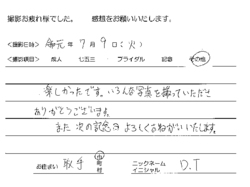 撮影お疲れ様でした。 感想をお願いいたします。
<撮影日時> 令元年 7月 9日(火)
<撮影項目> 成人 七五三 ブライダル 記念 その他
楽しかったです。いろんな写真を撮っていただき
ありがとうございます。
また 次の記念日 よろしくおねがいいたします。
お住まい 取手 市 町 村 ニックネーム イニシャル D.T